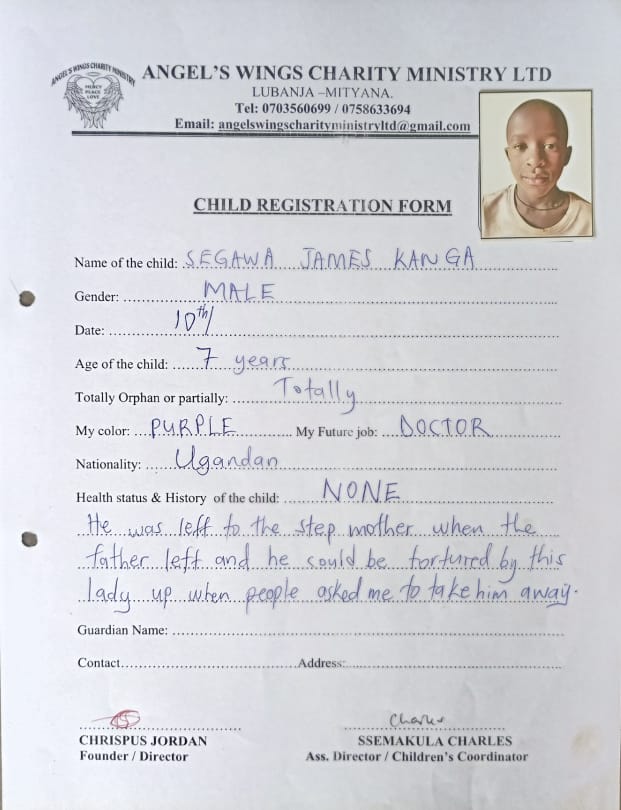 ANGEL'S WINGS CHARITY MINISTRY
MERCY
PEACE
LOVE
ANGEL'S WINGS CHARITY MINISTRY LTD
LUBANJA –MITYANA.
Tel: 0703560699 / 0758633694
Email: angelswingscharityministryltd@gmail.com
CHILD REGISTRATION FORM
Name of the child: SEGAWA JAMES KANGA
Gender: MALE
Date: 10th/
Age of the child: 7 years
Totally Orphan or partially: Totally
My color: PURPLE My Future job: DOCTOR
Nationality: Ugandan
Health status & History of the child: NONE
He was left to the step mother when the
father left and he could be tortured by this
lady up when people asked me to take him away.
Guardian Name:
Contact Address:
Charles
CHRISPUS JORDAN SSEMAKULA CHARLES
Founder / Director Ass. Director / Children's Coordinator